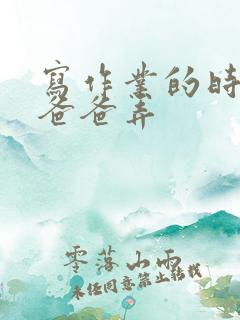 寫作業的時
爸爸弄
零落山雨
未经同意禁止转载